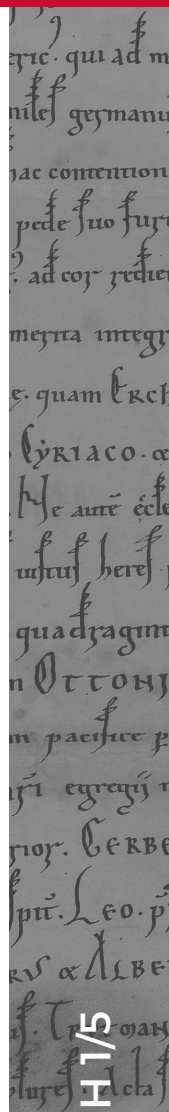 eric. qui ad m
miles germanu
hac contention
pede suo furt
. ad cor redier
merita integr
ę. quam Erch
Cyriaco. &
. Ne autē ęcle
iustus heres
quadragint
n Ottoni
m pacifice p
egregii
rior. Gerbe
spit. Leo. p
& Albe
H 1/5